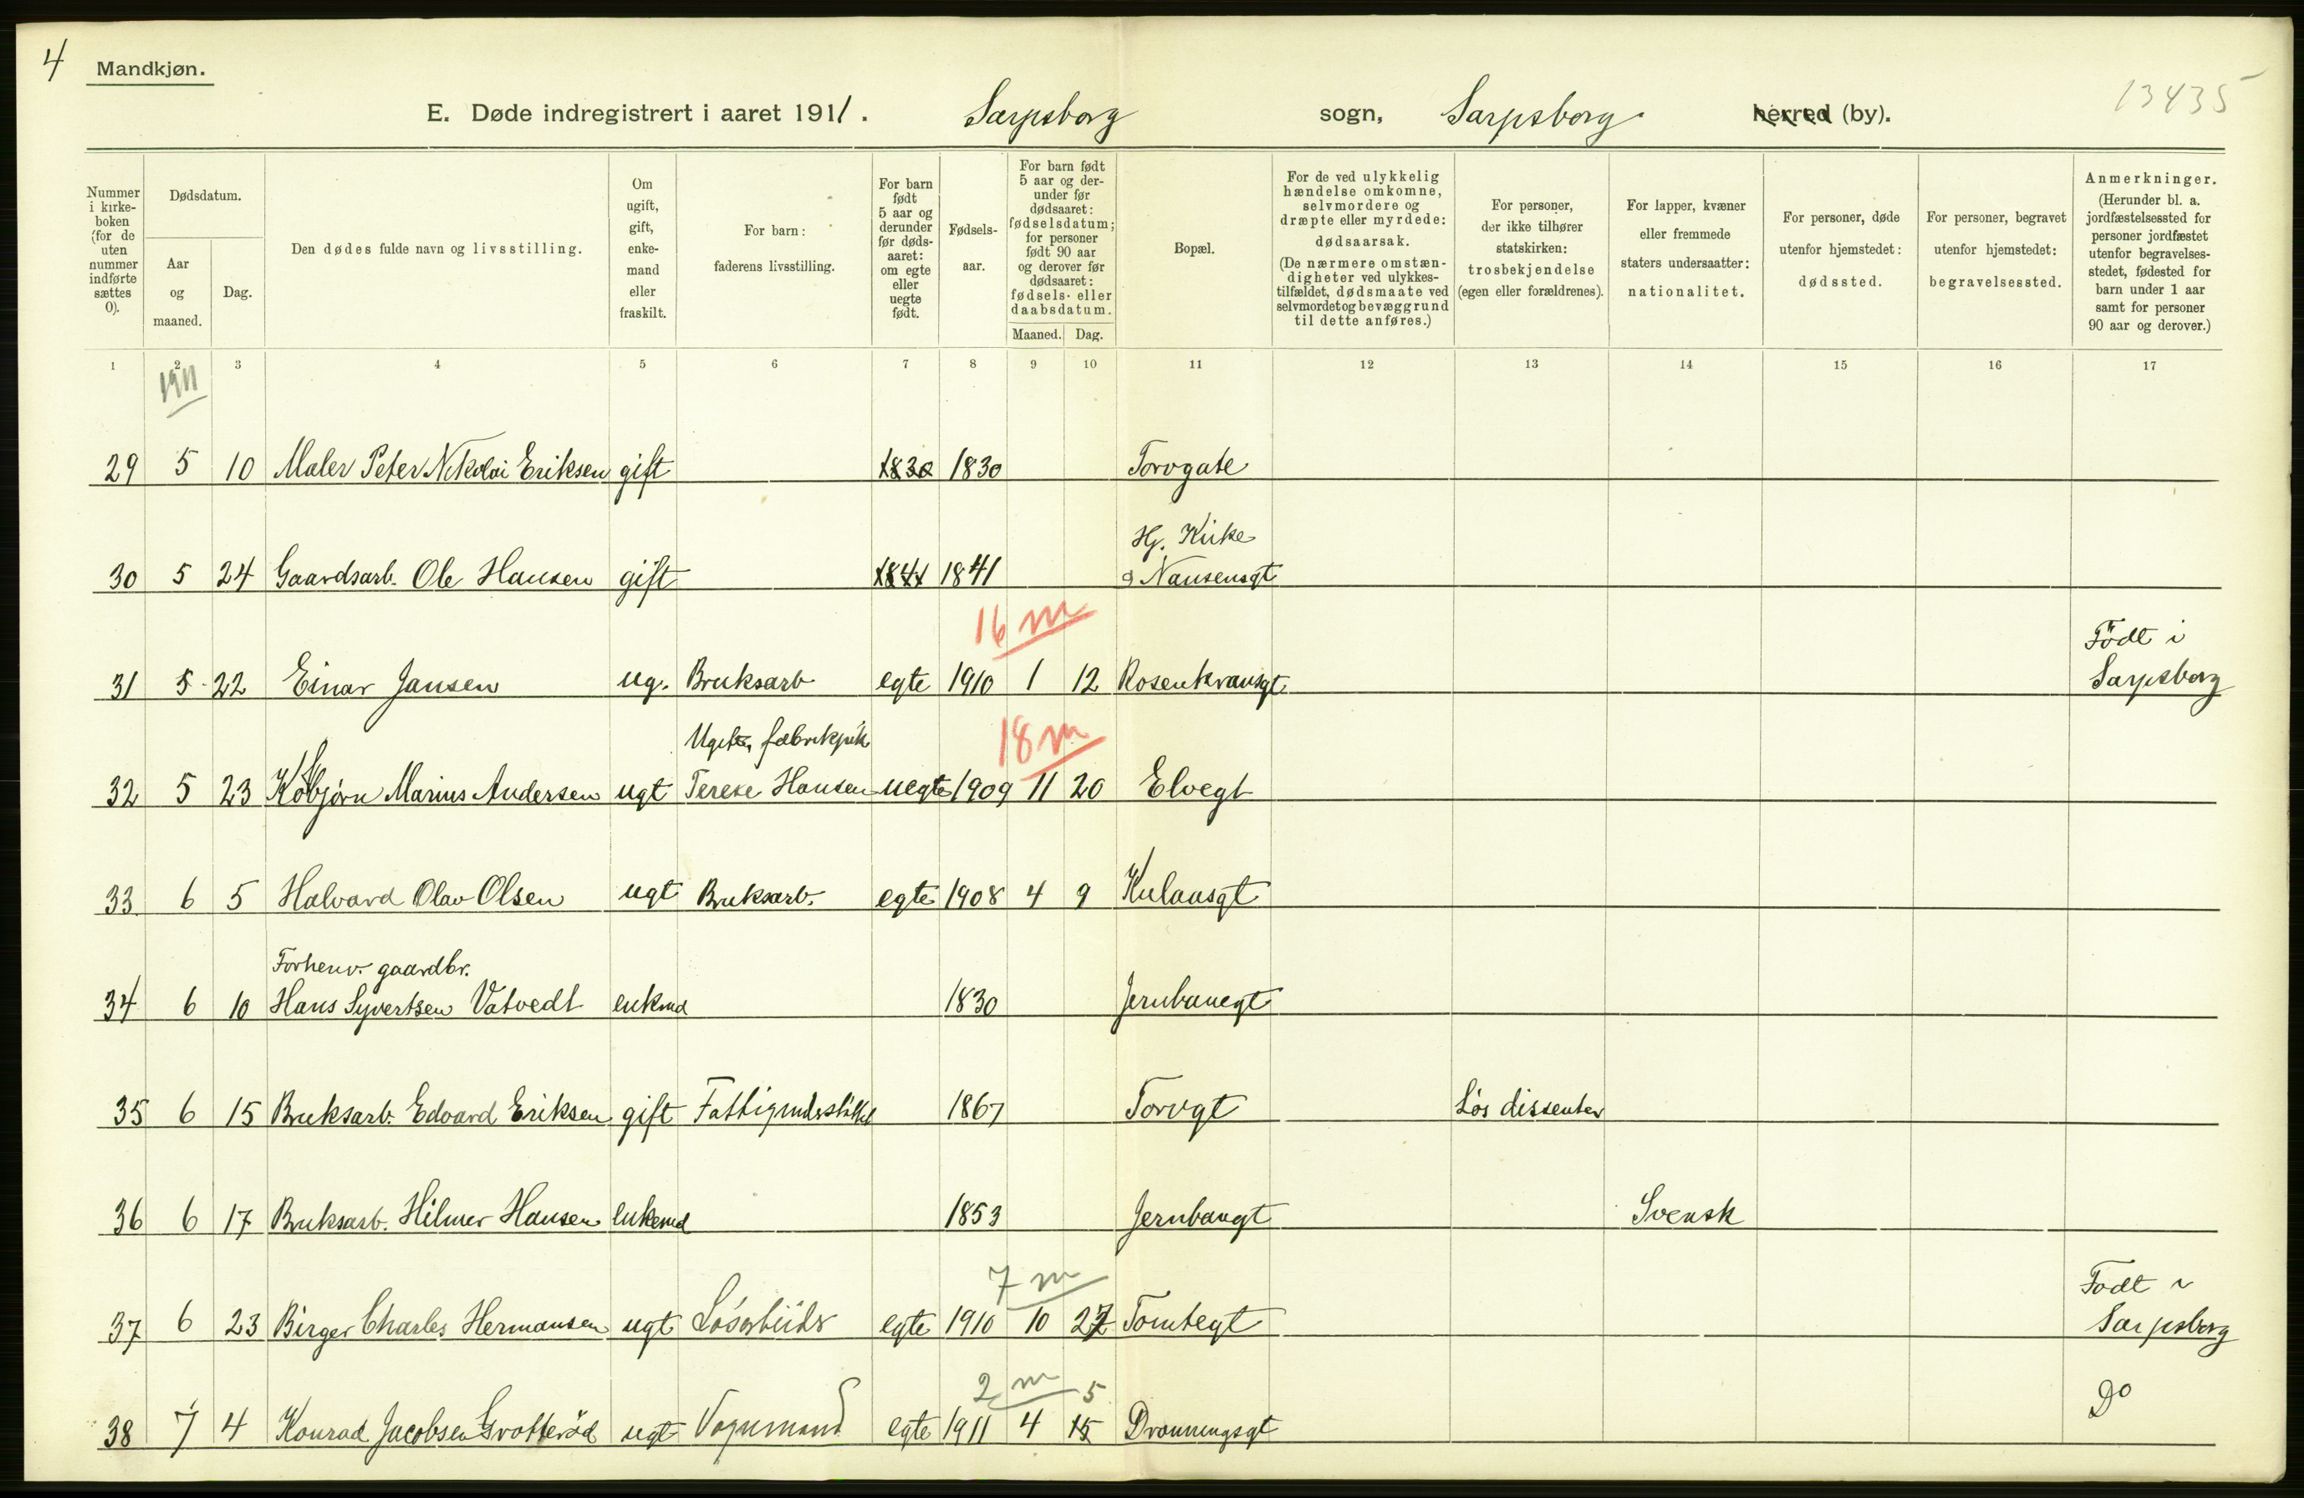 4
Mandkjøn.
E. Døde indregistrert i aaret 1911. Sarpsborg sogn, Sarpsborg herred (by).
13435
Nummer i kirkeboken (for de uten nummer indførte sættes 0).
Dødsdatum.
Aar og maaned.
Dag.
Den dødes fulde navn og livsstilling.
Om ugift, gift, enkemand eller fraskilt.
For barn: faderens livsstilling.
For barn født 5 aar og derunder før dødsaaret: om egte eller uegte født.
Fødselsaar.
For barn født 5 aar og derunder før dødsaaret: fødselsdatum; for personer født 90 aar og derover før dødsaaret: fødsels- eller daabsdatum.
Maaned. Dag.
Bopæl.
For de ved ulykkelig hændelse omkomne, selvmordere og dræpte eller myrdede: dødsaarsak. (De nærmere omstændigheter ved ulykkestilfældet, dødsmaate ved selvmordet og bevæggrund til dette anføres.)
For personer, der ikke tilhører statskirken: trosbekjendelse (egen eller forældrenes).
For lapper, kvæner eller fremmede staters undersaatter: nationalitet.
For personer, døde utenfor hjemstedet: dødssted.
For personer, begravet utenfor hjemstedet: begravelsessted.
Anmerkninger. (Herunder bl. a. jordfæstelsessted for personer jordfæstet utenfor begravelsesstedet, fødested for barn under 1 aar samt for personer 90 aar og derover.)
1 2 3 4 5 6 7 8 9 10 11 12 13 14 15 16 17
1911
29 5 10 Maler Peter Nikolai Eriksen gift 1830 1830 Torvgate
Hj. Kirke
30 5 24 Gaardsarb. Ole Hansen gift 1841 1841 g Nansensgt
16 m
Födt i
31 5 22 Einar Jansen ug. Bruksarb egte 1910 1 12 Rosenkransgt Sarpsborg
Ugift, fabrikpik 18 m
32 5 23 Marius Andersen ugt Terese Hansen uegte 1909 11 20 Elvegt
33 6 5 Halvard Olav Olsen ugt Bruksarb. egte 1908 4 9 Kulaasgt
Forhenv. gaardbr.
34 6 10 Hans Syvertsen Vatvedt enkmd 1830 Jernbanegt
35 6 15 Bruksarb. Edvard Eriksen gift Fattigunderstöttet 1867 Torvgt Løs dissenter
36 6 17 Bruksarb. Hilmer Hansen enkemd 1853 Jernbangt Svensk
7 m
Födt i
37 6 23 Birger Charles Hermansen ugt Løsarbeider egte 1910 10 27 Tomtegt Sarpsborg
2 m 5
38 7 4 Konrad Jacobsen Grotterød ugt Vognmand egte 1911 4 15 Dronningsgt Do